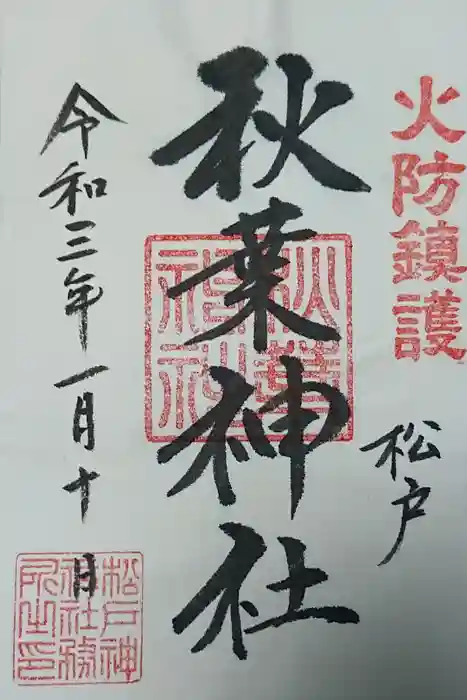 火防鎮護
松戸
秋葉神社
秋葉神社
令和三年一月十日
松戸神社務所之印